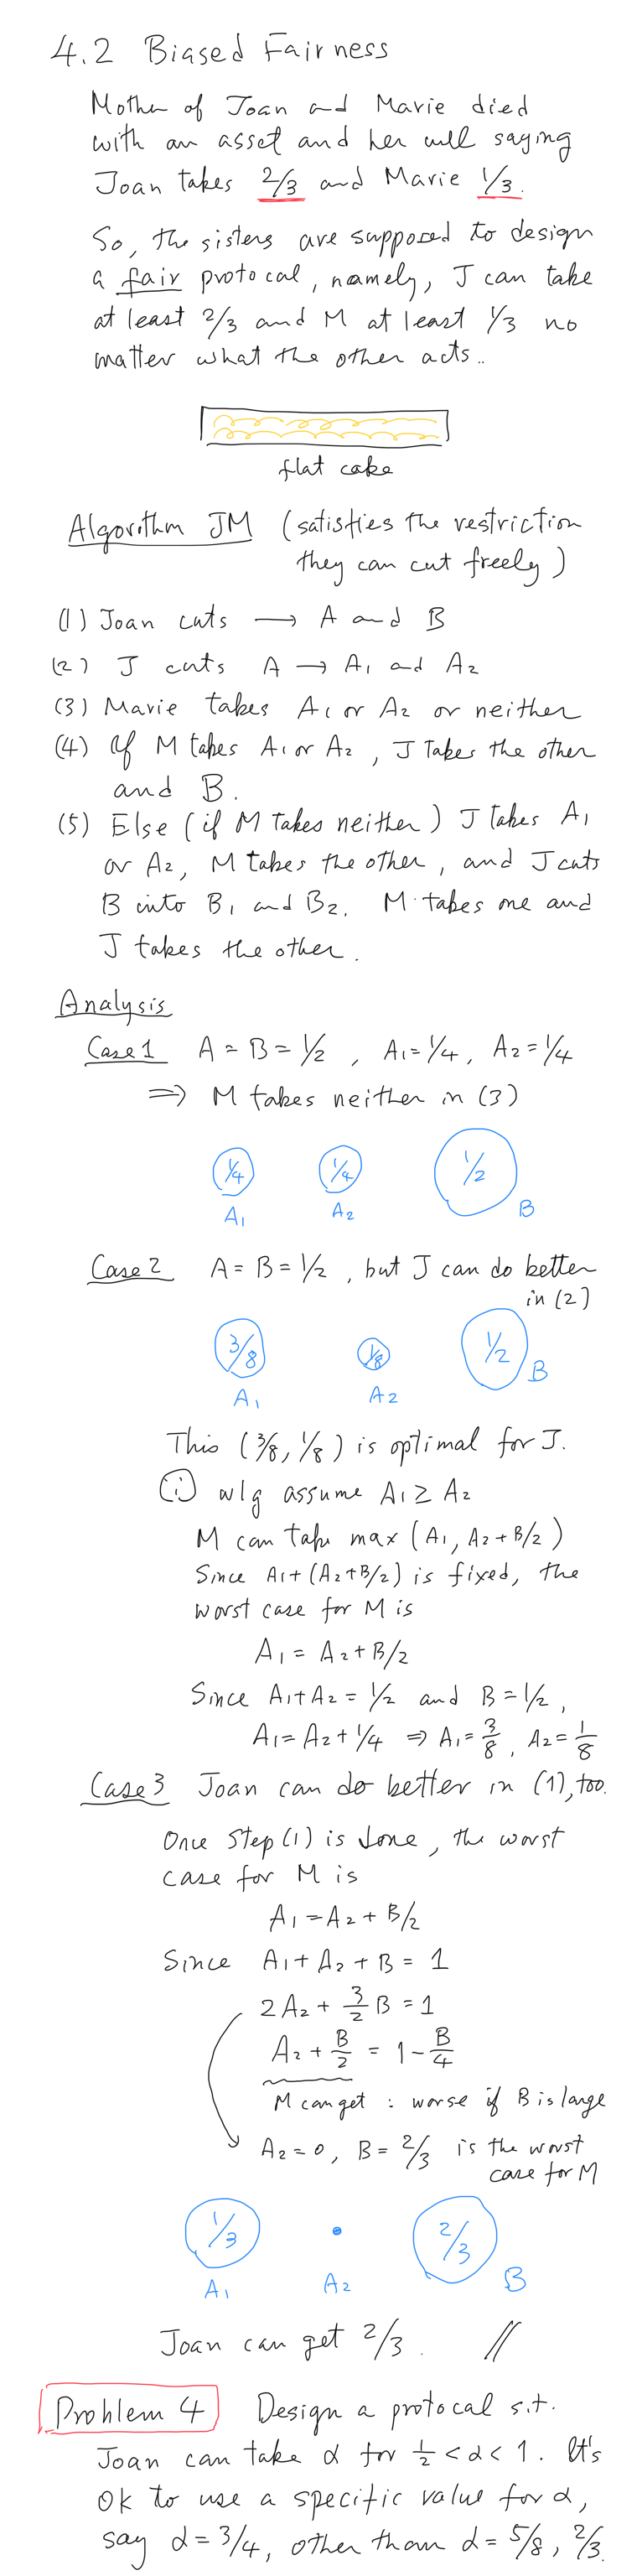 4.2 Biased Fairness
Mother of Joan and Marie died
with an asset and her will saying
Joan takes 2/3 and Marie 1/3.
So, the sisters are supposed to design
a fair protocal, namely, J can take
at least 2/3 and M at least 1/3 no
matter what the other acts..
flat cake
Algorithm JM (satisfies the restriction
they can cut freely)
(1) Joan cuts → A and B
(2) J cuts A → A1 and A2
(3) Marie takes A1 or A2 or neither
(4) If M takes A1 or A2, J takes the other
and B.
(5) Else (if M takes neither) J takes A1
or A2, M takes the other, and J cuts
B into B1 and B2. M takes one and
J takes the other.
Analysis
Case 1 A = B = 1/2, A1 = 1/4, A2 = 1/4
⇒ M takes neither in (3)
1/4 1/4 1/2
A1 A2 B
Case 2 A = B = 1/2, but J can do better
in (2)
3/8 1/8 1/2
A1 A2 B
This (3/8, 1/8) is optimal for J.
(∵) wlg assume A1 ≥ A2
M can take max (A1, A2 + B/2)
Since A1 + (A2 + B/2) is fixed, the
worst case for M is
A1 = A2 + B/2
Since A1 + A2 = 1/2 and B = 1/2,
A1 = A2 + 1/4 ⇒ A1 = 3/8, A2 = 1/8
Case 3 Joan can do better in (1), too.
Once Step (1) is done, the worst
case for M is
A1 = A2 + B/2
Since A1 + A2 + B = 1
2A2 + 3/2 B = 1
A2 + B/2 = 1 - B/4
M can get : worse if B is large
A2 = 0, B = 2/3 is the worst
case for M
1/3 2/3
A1 A2 B
Joan can get 2/3. //
Problem 4 Design a protocal s.t.
Joan can take α for 1/2 < α < 1. It's
OK to use a specific value for α,
say α = 3/4, other than α = 5/8, 2/3.